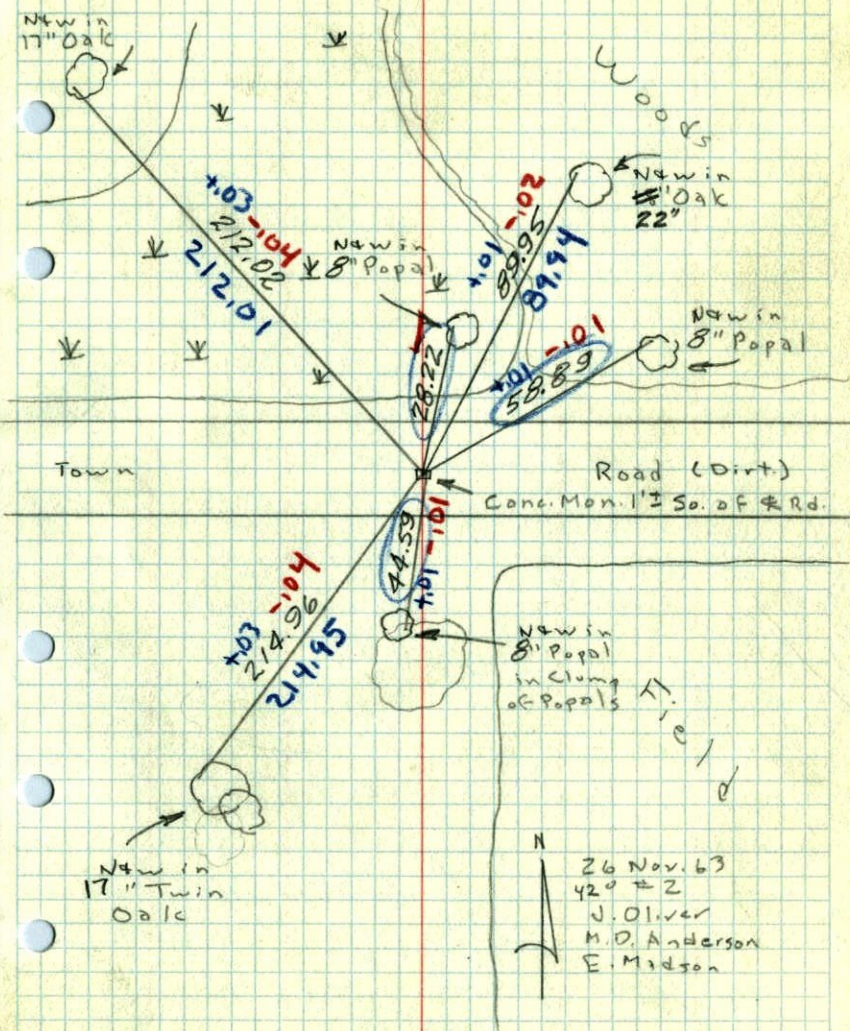 N&W in
17" Oak
Woods
N&W in
" Oak
22"
+.03 -.04
212.02
212.01
N&W in
8" Popal
+.01 -.02
89.95
89.94
28.22
N&W in
8" Popal
+.01 -.01
58.89
Town
Road (Dirt.)
Conc. Mon. 1'± So. of ℄ Rd.
44.59
+.01 -.01
+.03 -.04
214.96
214.95
N&W in
8" Popal
in Clump
of Popals
Field
N&W in
17" Twin
Oak
N
26 Nov. 63
42°
J. Oliver
M.D. Anderson
E. Madson